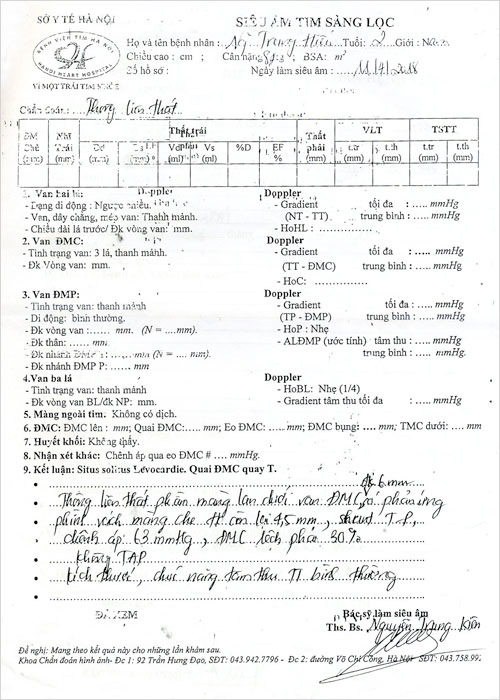 SỞ Y TẾ HÀ NỘI
BỆNH VIỆN TIM HÀ NỘI
HANOI HEART HOSPITAL
VÌ MỘT TRÁI TIM KHỎE
SIÊU ÂM TIM SÀNG LỌC
Họ và tên bệnh nhân: Ng Trung Hiếu Tuổi: 2 Giới: Nam
Chiều cao: cm; Cân nặng: kg; BSA: m²
Số hồ sơ: Ngày làm siêu âm: 11/4/2018
Chẩn đoán: Thông liên thất
ĐM Nhĩ Thất trái Thất VLT TSTT
Chủ Trái Dd Ds Vd Vs %D EF phải t.tr t.th t.tr t.th
(mm) (mm) (ml) (ml) % (mm) (mm) (mm) (mm) (mm)
1. Van hai lá: Doppler
- Dạng di động: Ngược chiều.
- Van, dây chằng, mép van: Thanh mảnh.
- Chiều dài lá trước/ Đk vòng van: mm.
Doppler
- Gradient tối đa : ..... mmHg
(NT - TT) trung bình : ..... mmHg
- HoHL: ...............
2. Van ĐMC:
- Tình trạng van: 3 lá, thanh mảnh.
- Đk Vòng van: mm.
Doppler
- Gradient tối đa : ..... mmHg
(TT - ĐMC) trung bình : ..... mmHg
- HoC: ...............
3. Van ĐMP:
- Tình trạng van: thanh mảnh
- Di động: bình thường.
- Đk vòng van:...... mm. (N = ....mm).
- Đk thân: ...... mm
- Đk nhánh ĐMP T: ......mm (N = .... mm).
- Đk nhánh ĐMP P: ...... mm
Doppler
- Gradient tối đa : ..... mmHg
(TP - ĐMP) trung bình : ..... mmHg
- HoP : Nhẹ
- ALĐMP (ước tính) tâm thu : ..... mmHg
trung bình : ..... mmHg.
4.Van ba lá
- Tình trạng van: thanh mảnh
- Đk vòng van BL/đk NP: mm.
Doppler
- HoBL: Nhẹ (1/4)
- Gradient tâm thu tối đa : ..... mmHg
5. Màng ngoài tim. Không có dịch.
6. ĐMC: ĐMC lên : mm; Quai ĐMC:..... mm; Eo ĐMC: .... mm; ĐMC bụng: .... mm; TMC dưới: .... mm
7. Huyết khối: Không thấy.
8. Nhận xét khác: Chênh áp qua eo ĐMC # .... mmHg.
9. Kết luận: Situs solitus Levocardie. Quai ĐMC quay T.
đk 6 mm
Thông liên thất phần màng lan dưới van ĐMC, có phản ứng
phình vách màng che đk còn lại 4,5 mm, shunt T-P,
chênh áp 63 mmHg, ĐMC lệch phải 30%
Không TAP
Kích thước, chức năng tâm thu TT bình thường
ĐÃ XEM
Bác sỹ làm siêu âm
Ths. Bs. Nguyễn Trung Kiên
Đề nghị: Mang theo kết quả này cho những lần khám sau.
Khoa Chẩn đoán hình ảnh- Đc 1: 92 Trần Hưng Đạo, SĐT: 043.942.7796 - Đc 2: đường Võ Chí Công, Hà Nội SĐT: 043.758.992